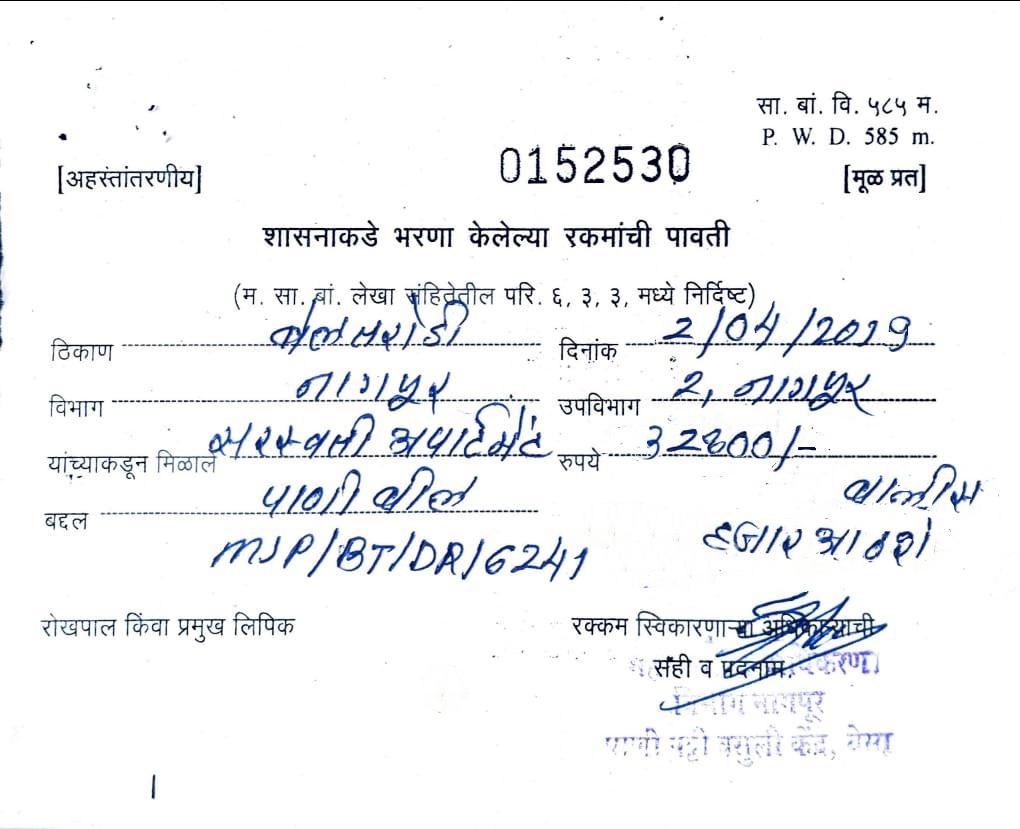 सा. बां. वि. ५८५ म.
P. W. D. 585 m.
[अहस्तांतरणीय] 0152530 [मूळ प्रत]
शासनाकडे भरणा केलेल्या रकमांची पावती
(म. सा. बां. लेखा संहितेतील परि. ६, ३, ३, मध्ये निर्दिष्ट)
ठिकाण बेलतरोडी दिनांक 2/04/2019
विभाग नागपूर उपविभाग 2, नागपूर
यांच्याकडून मिळाले सरस्वती अपार्टमेंट रुपये
बद्दल पाणी बील
हजार आठशे
MJP/BT/DR/6241
रोखपाल किंवा प्रमुख लिपिक रक्कम स्विकारणाऱ्या अधिकाऱ्याची
सही व पदनाम.
विभाग नागपूर
पाणी पट्टी वसुली केंद्र,